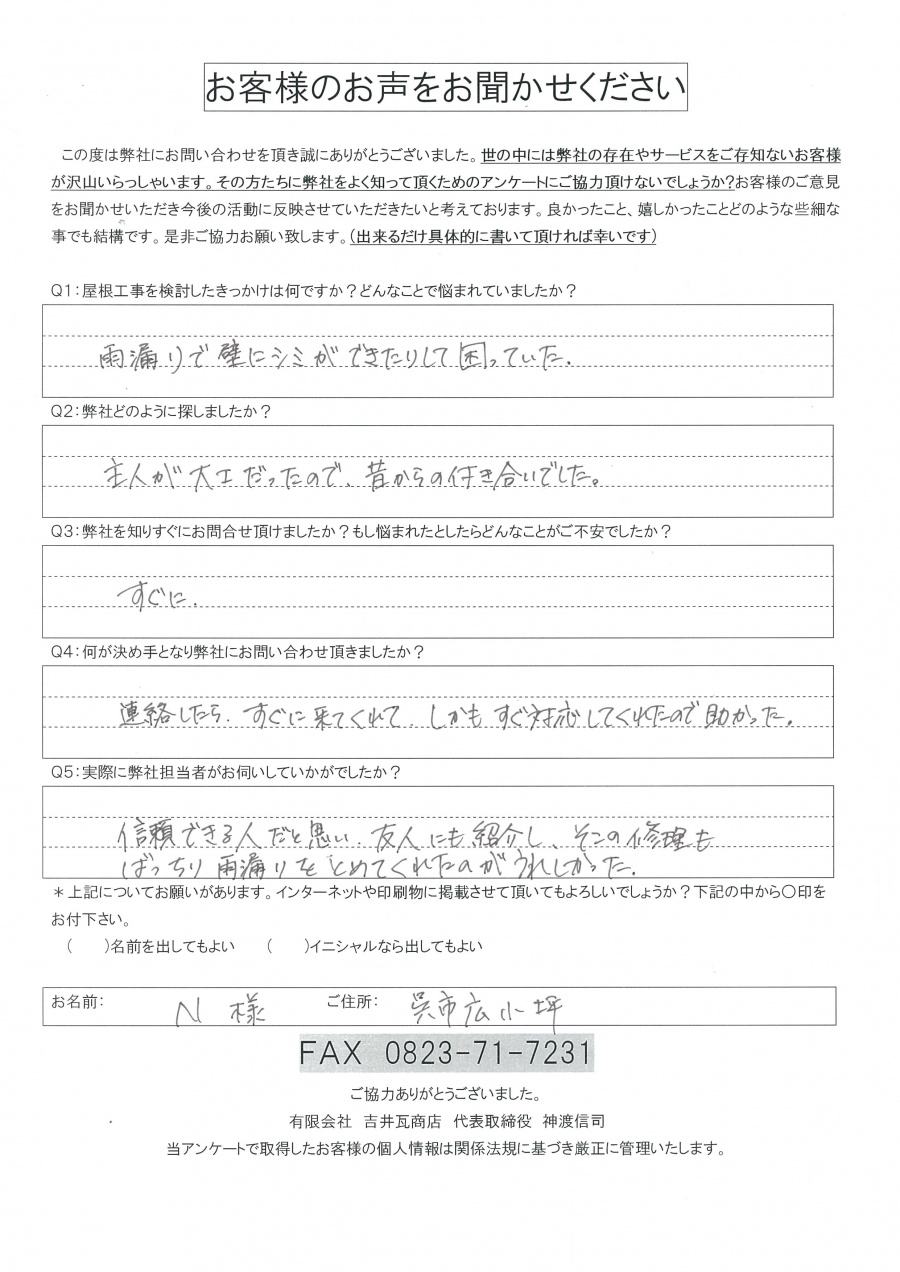 お客様のお声をお聞かせください
この度は弊社にお問い合わせを頂き誠にありがとうございました。世の中には弊社の存在やサービスをご存知ないお客様
が沢山いらっしゃいます。その方たちに弊社をよく知って頂くためのアンケートにご協力頂けないでしょうか?お客様のご意見
をお聞かせいただき今後の活動に反映させていただきたいと考えております。良かったこと、嬉しかったことどのような些細な
事でも結構です。是非ご協力お願い致します。(出来るだけ具体的に書いて頂ければ幸いです)
Q1:屋根工事を検討したきっかけは何ですか?どんなことで悩まれていましたか?
雨漏りで壁にシミができたりして困っていた.
Q2:弊社どのように探しましたか?
主人が大工だったので、昔からの付き合いでした。
Q3:弊社を知りすぐにお問合せ頂けましたか?もし悩まれたとしたらどんなことがご不安でしたか?
すぐに.
Q4:何が決め手となり弊社にお問い合わせ頂きましたか?
連絡したら、すぐに来てくれて、しかもすぐ対応してくれたので助かった.
Q5:実際に弊社担当者がお伺いしていかがでしたか?
信頼できる人だと思い、友人にも紹介し、そこの修理も
ばっちり雨漏りをとめてくれたのがうれしかった.
*上記についてお願いがあります。インターネットや印刷物に掲載させて頂いてもよろしいでしょうか?下記の中から〇印を
お付下さい。
( )名前を出してもよい ( )イニシャルなら出してもよい
お名前: N 様 ご住所: 呉市広小坪
FAX 0823-71-7231
ご協力ありがとうございました。
有限会社 吉井瓦商店 代表取締役 神渡信司
当アンケートで取得したお客様の個人情報は関係法規に基づき厳正に管理いたします。